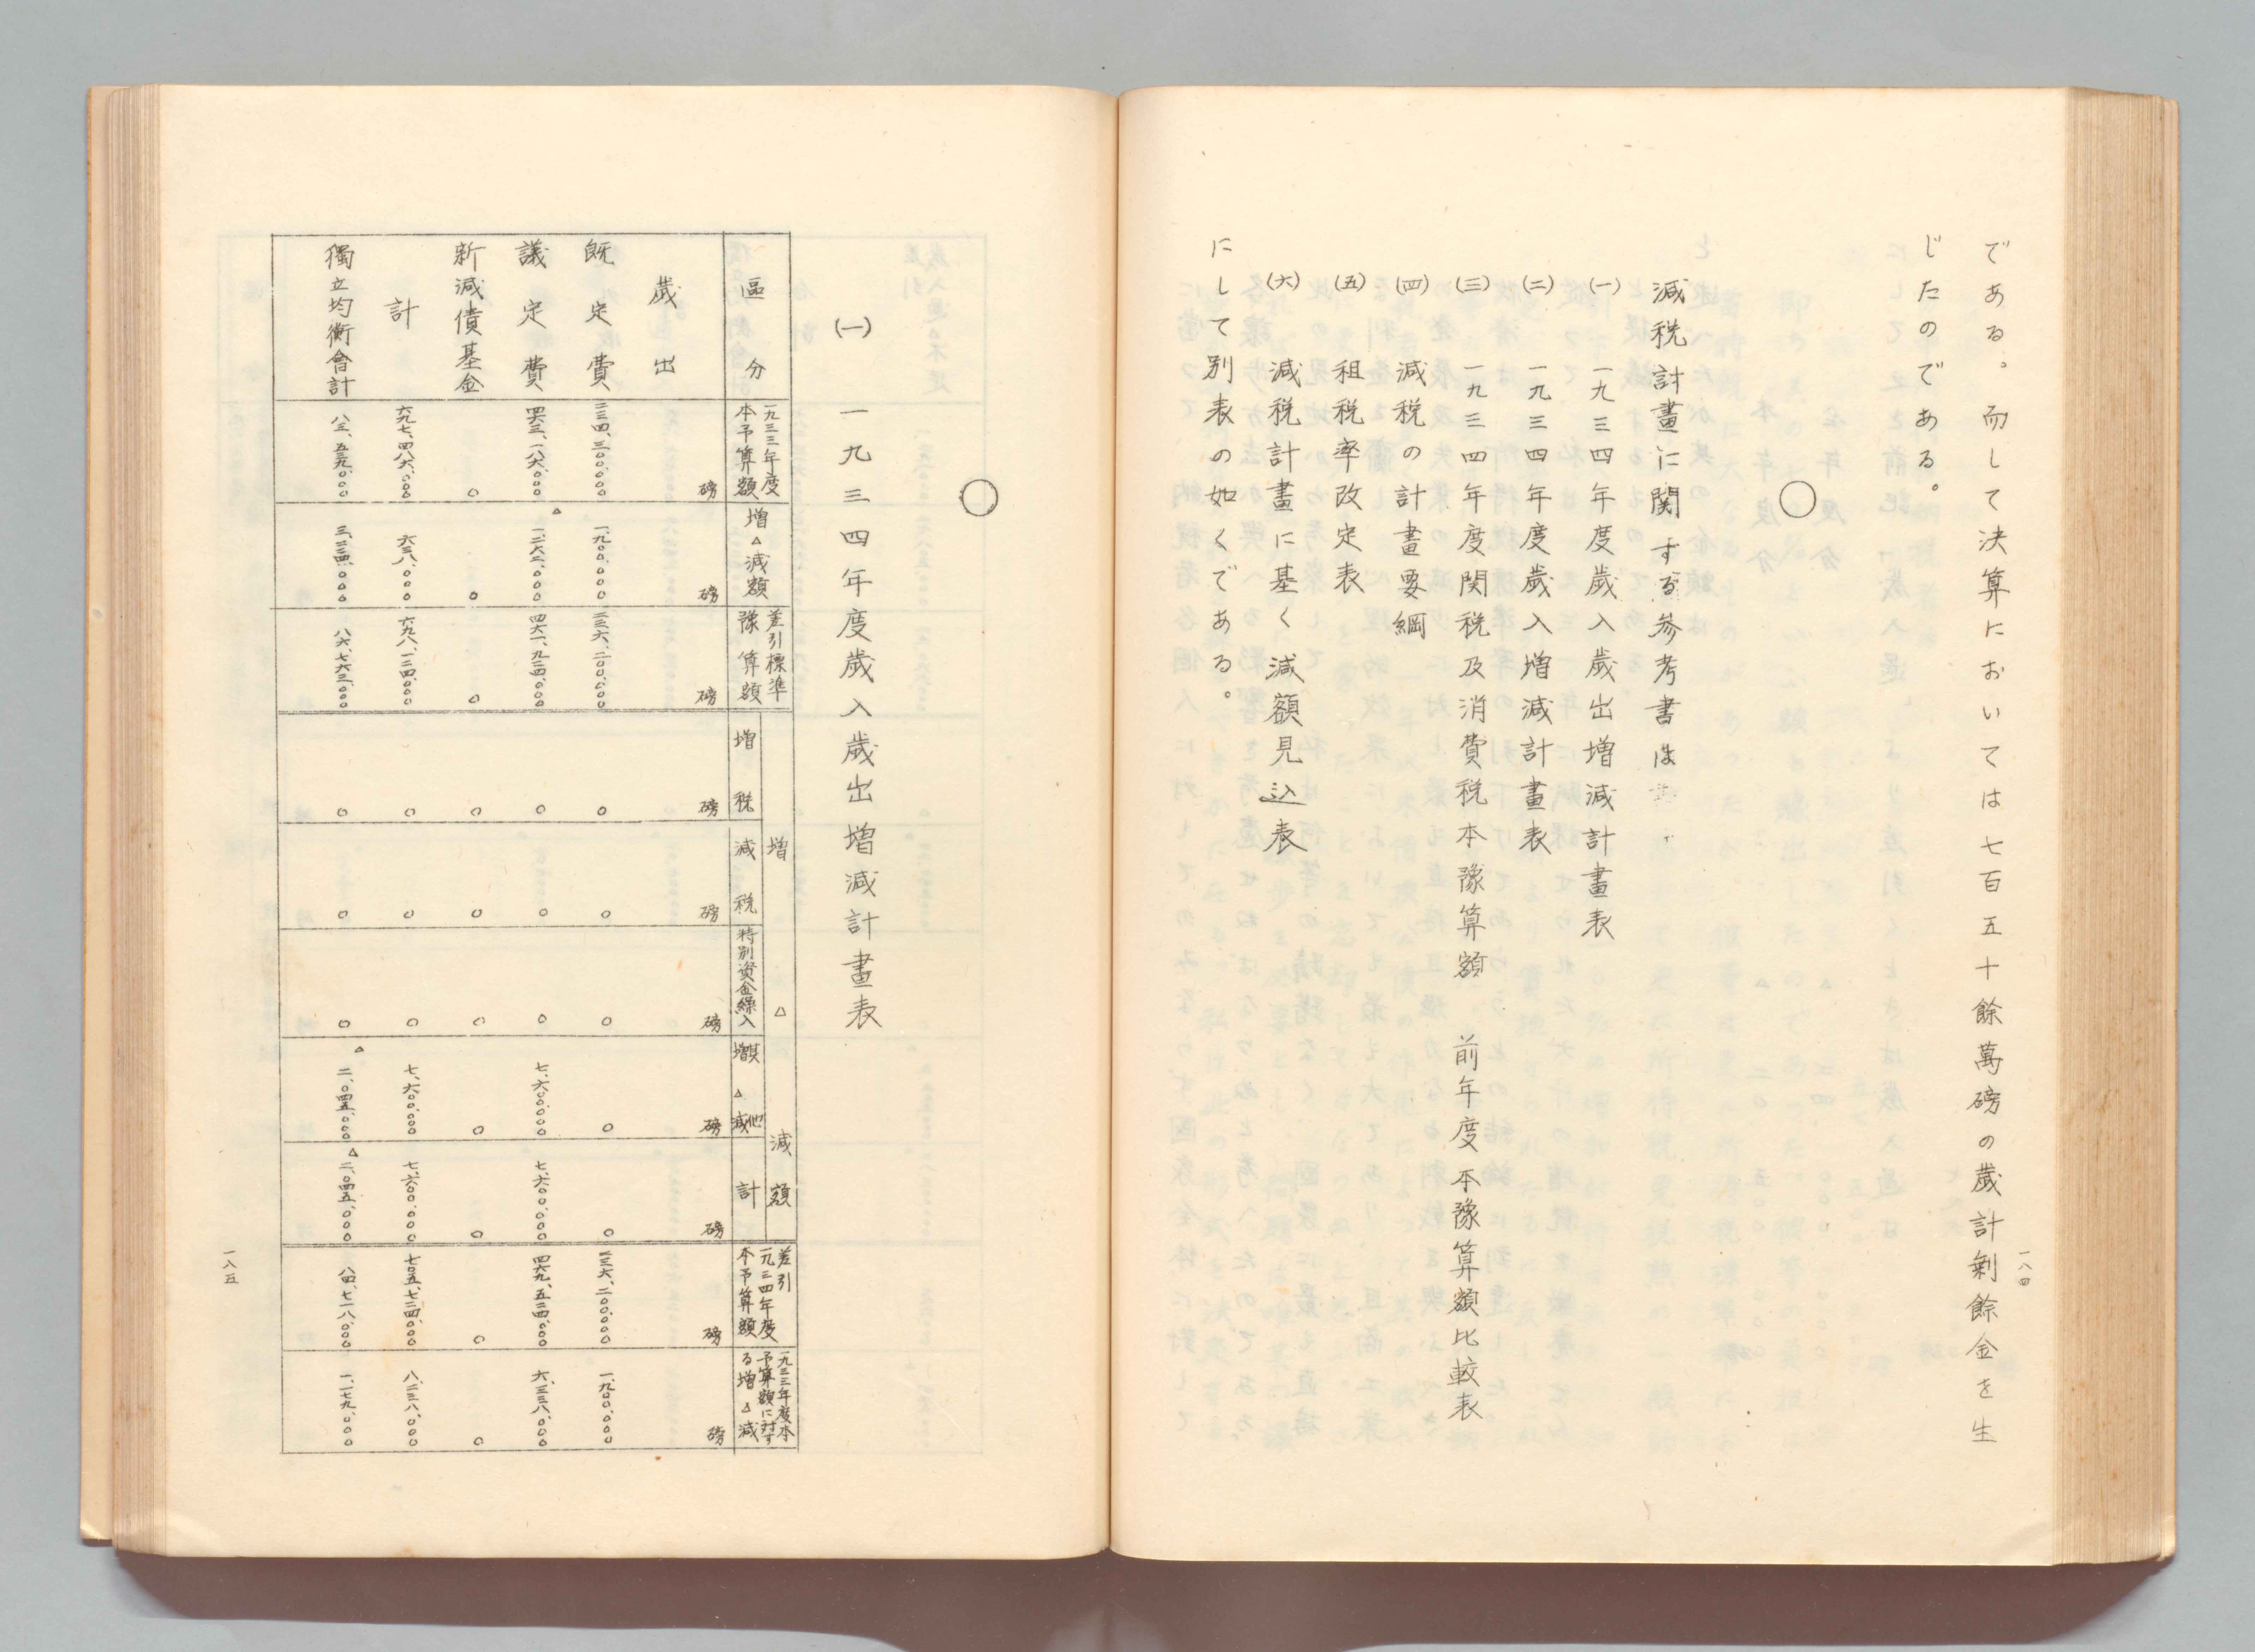 一八四
である。而して決算においては七百五十餘萬磅の歳計剰餘金を生
じたのである。
〇
減税計畫に関する参考書は
(一) 一九三四年度歳入歳出増減計畫表
(二) 一九三四年度歳入増減計畫表
(三) 一九三四年度関税及消費税本豫算額 前年度本豫算額比較表
(四) 減税の計畫要綱
(五) 租税率改定表
(六) 減税計畫に基く減額見込表
にして別表の如くである。
〇
(一) 一九三四年度歳入歳出増減計畫表
區分 一九三三年度本予算額 増△減額 差引標準豫算額 増△減額 増税 減税 特別資金繰入 其他増△減 計 差引一九三四年度本予算額 一九三三年度本予算額に対する増△減
歳出 磅 磅 磅 磅 磅 磅 磅 磅 磅 磅
既定費 二三四、三〇〇、〇〇〇 一、九〇〇、〇〇〇 二三六、二〇〇、〇〇〇 〇 〇 〇 〇 〇 二三六、二〇〇、〇〇〇 一、九〇〇、〇〇〇
議定費 四六三、一八六、〇〇〇 △一、二六二、〇〇〇 四六一、九二四、〇〇〇 〇 〇 〇 七、六〇〇、〇〇〇 七、六〇〇、〇〇〇 四六九、五二四、〇〇〇 六、三三八、〇〇〇
新減債基金 〇 〇 〇 〇 〇 〇 〇 〇 〇 〇
計 六九七、四八六、〇〇〇 六三八、〇〇〇 六九八、一二四、〇〇〇 〇 〇 〇 七、六〇〇、〇〇〇 七、六〇〇、〇〇〇 七〇五、七二四、〇〇〇 八、二三八、〇〇〇
獨立均衡會計 八三、五三九、〇〇〇 三、二二四、〇〇〇 八六、七六三、〇〇〇 〇 〇 〇 △二、〇四五、〇〇〇 △二、〇四五、〇〇〇 八四、七一八、〇〇〇 一、一七九、〇〇〇
一八五